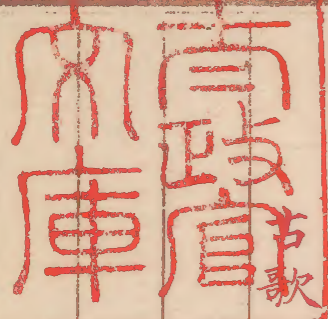 太政官
文庫
古歌